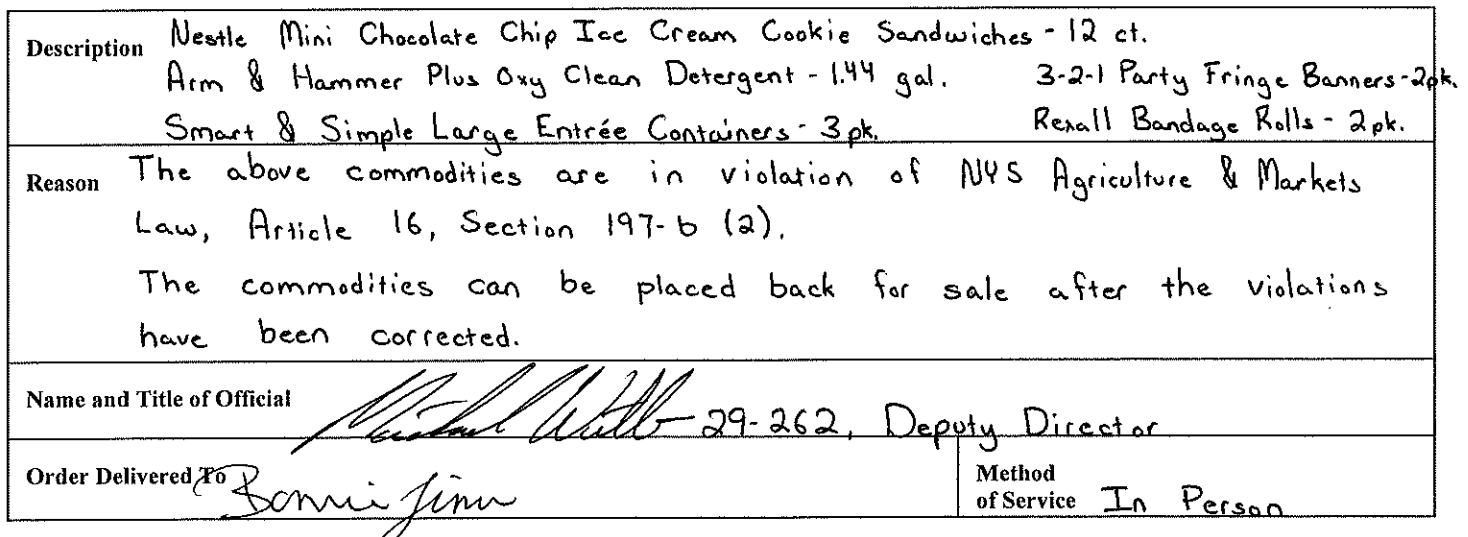 Description Nestle Mini Chocolate Chip Ice Cream Cookie Sandwiches - 12 ct.
Arm & Hammer Plus Oxy Clean Detergent - 1.44 gal. 3-2-1 Party Fringe Banners - 2pk.
Smart & Simple Large Entrée Containers - 3 pk. Rexall Bandage Rolls - 2 pk.
Reason The above commodities are in violation of NYS Agriculture & Markets
Law, Article 16, Section 197-b (2).
The commodities can be placed back for sale after the violations
have been corrected.
Name and Title of Official 29-262, Deputy Director
Order Delivered To Bonnie
Method
of Service In Person